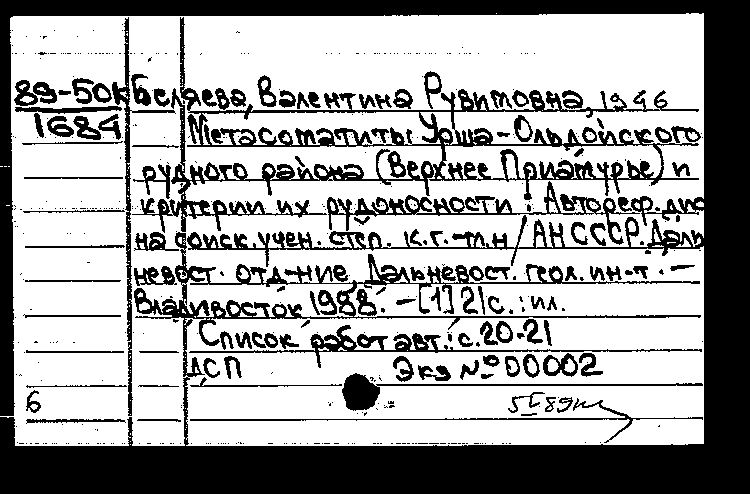 89-50к Беляева, Валентина Рувимовна, 1946
1684 Метасоматиты Урша-Ольдойского
рудного района (Верхнее Приамурье) и
критерии их рудоносности : Автореф. дис
на соиск. учен. степ. к.г.-м.н / АН СССР. Даль
невост. отд-ние, Дальневост. геол. ин-т. —
Владивосток 1988. - [1] 21с. : ил.
Список работ авт.: с. 20-21
ДСП Экз № 00002
6